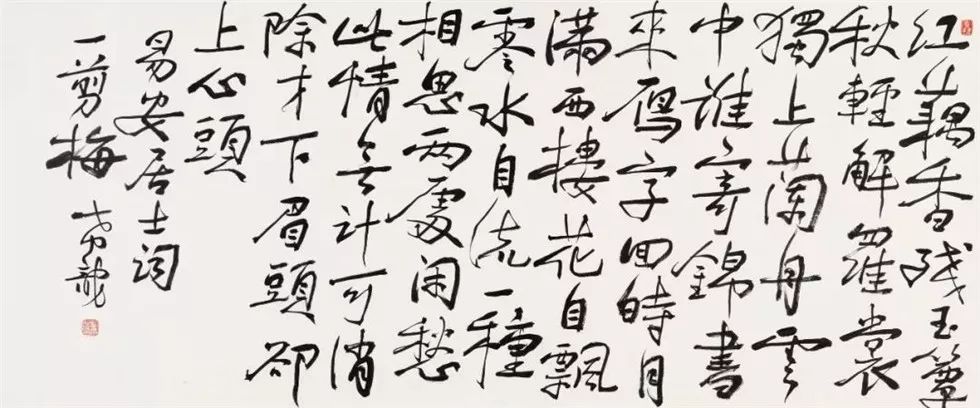 红藕香残玉簟
秋輕解羅裳
獨上蘭舟雲
中誰寄錦書
來鴈字回時月
滿西樓花自飄
零水自流一種
相思兩處闲愁
此情無計可消
除才下眉頭卻
上心頭
易安居士词
一剪梅